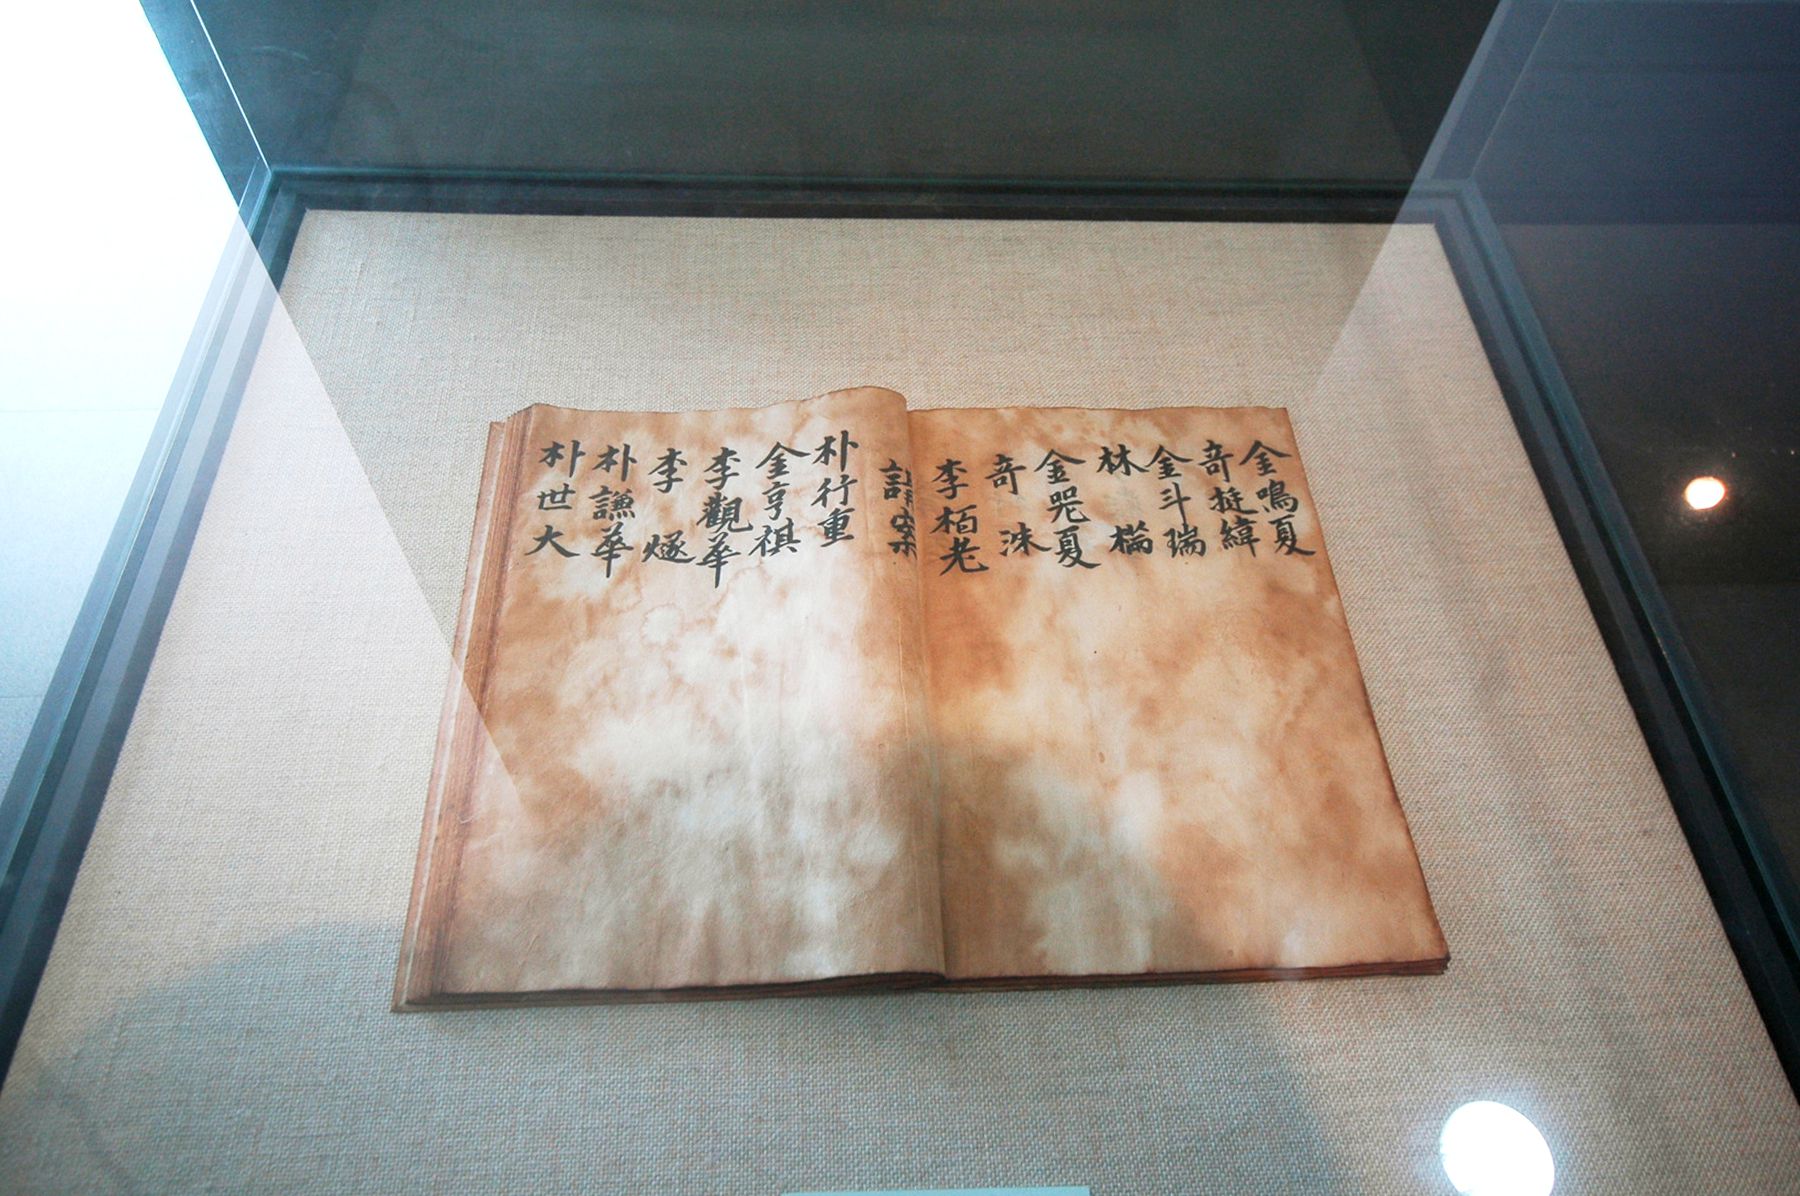 金鳴夏
奇挺緯
金斗瑞
林 檤
金咒夏
奇 洙
李栢老
案
朴行重
金亨祺
李觀華
李 燧
朴謙華
朴世大